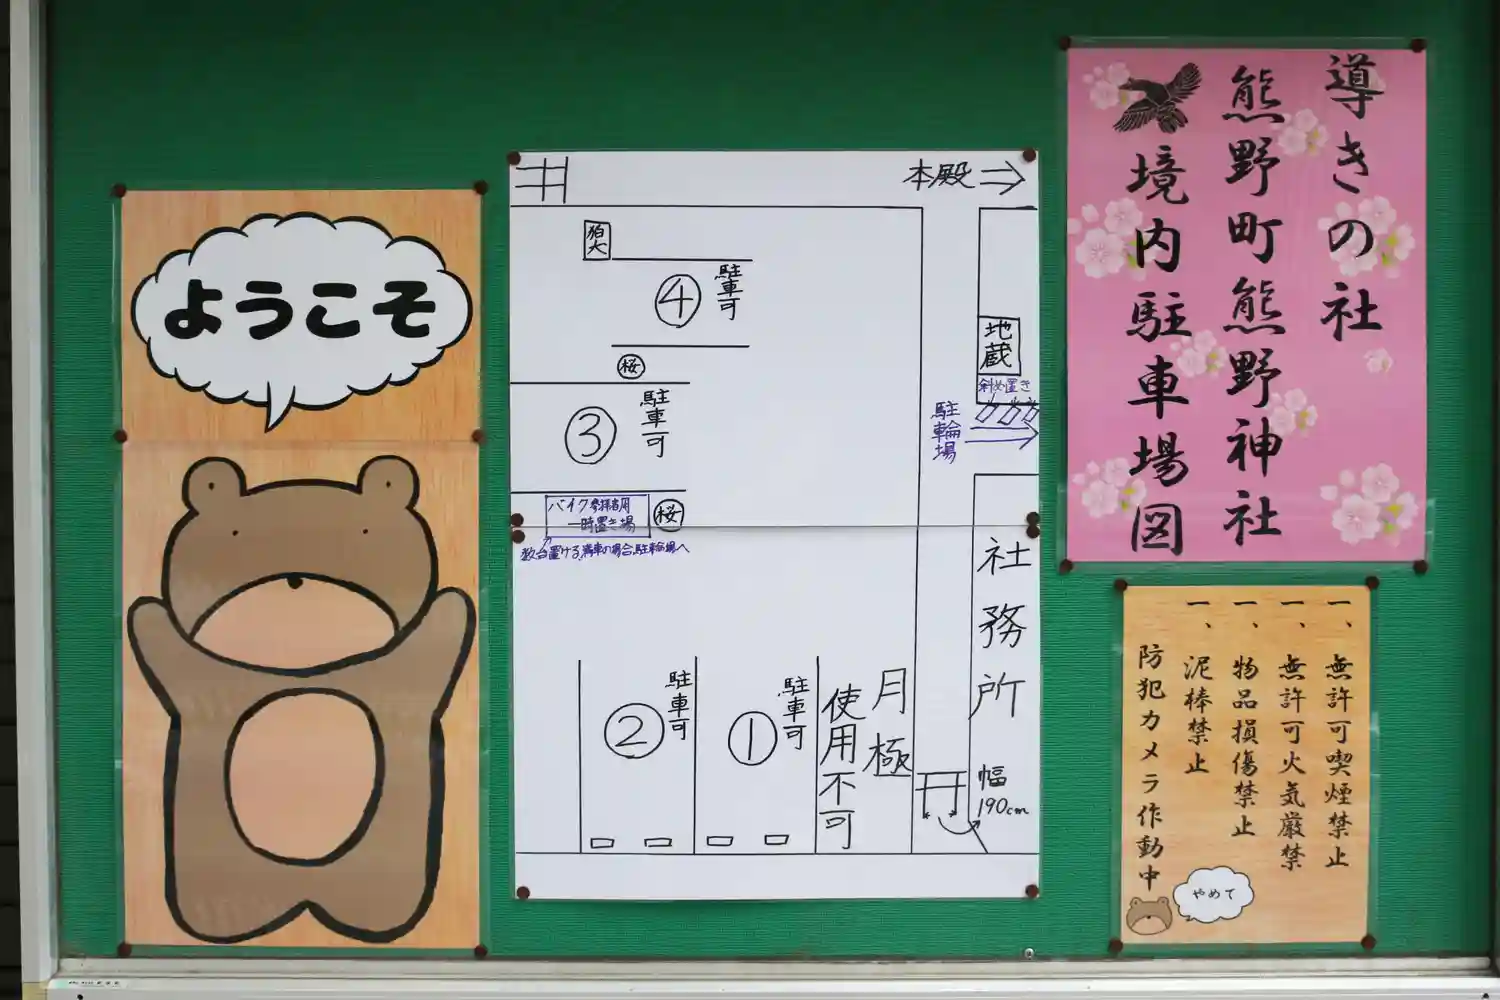 ようこそ
本殿
狛犬
④
駐車可
桜
③
駐車可
バイク参拝者用
一時置き場
桜
数台置ける、満車の場合、駐輪場へ
地蔵
斜め置き
駐輪場
②
駐車可
①
駐車可
月極
使用不可
社務所
幅
190cm
導きの社
熊野町熊野神社
境内駐車場図
一、無許可喫煙禁止
一、無許可火気厳禁
一、物品損傷禁止
一、泥棒禁止
防犯カメラ作動中
やめて